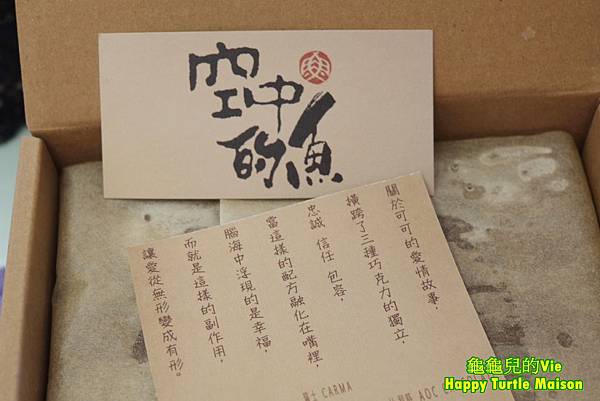 空中
的魚
關於可可的愛情故事，
橫跨了三種巧克力的獨立，
忠誠 信任 包容，
當這樣的配方融化在嘴裡，
腦海中浮現的是幸福，
而就是這樣的副作用，
讓愛從無形變成有形。
士 CARMA
AOC
龜龜兒的Vie
Happy Turtle Maison